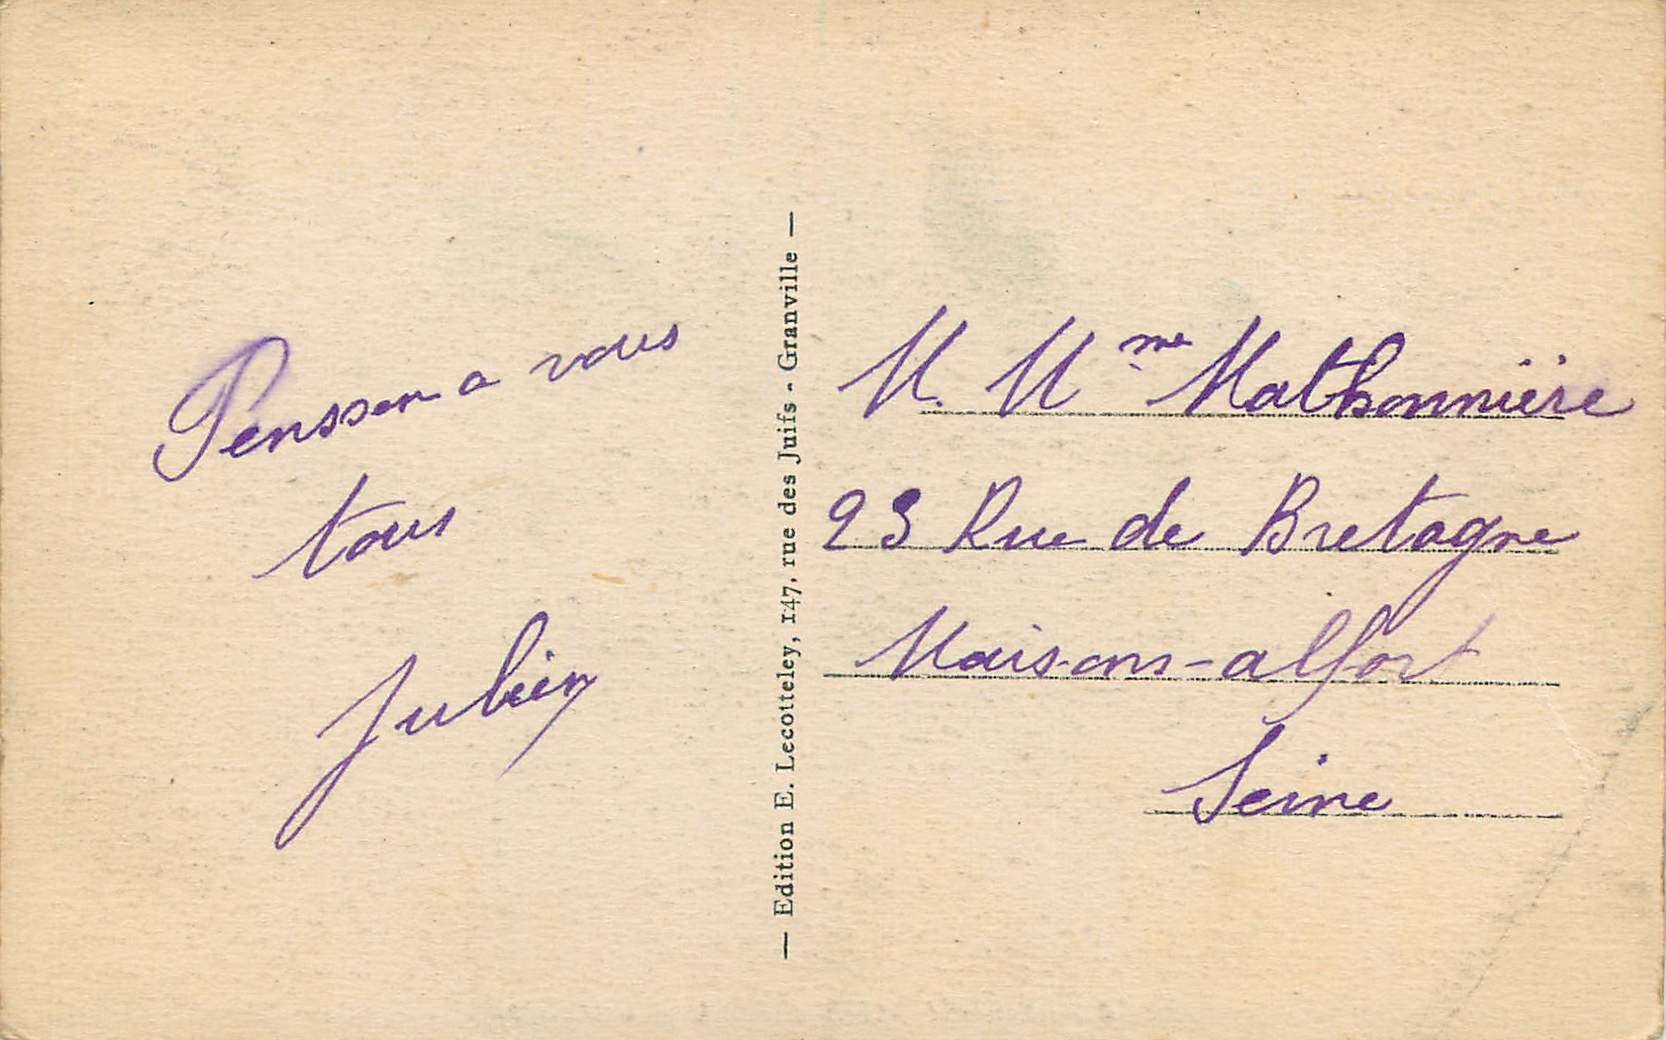 Pensson a vous
tous
Julien
— Edition E. Lecotteley, 147, rue des Juifs - Granville —
M. Mme Mathonnière
23 Rue de Bretagne
Maisons-alfort
Seine